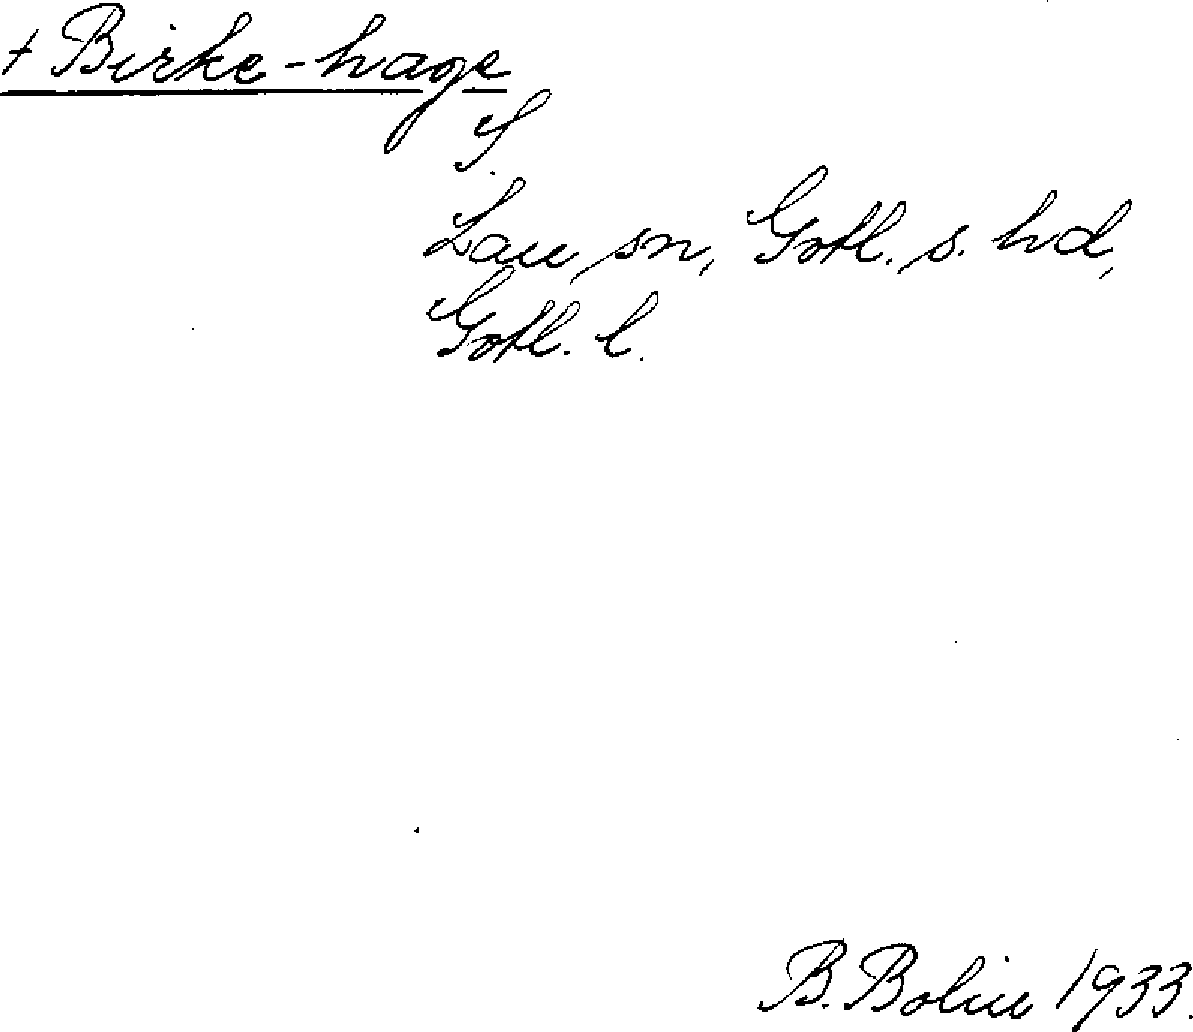 + Birke-hage
S.
Lau sn, Gotl. s. hd,
Gotl. l.
B. Bolin 1933.